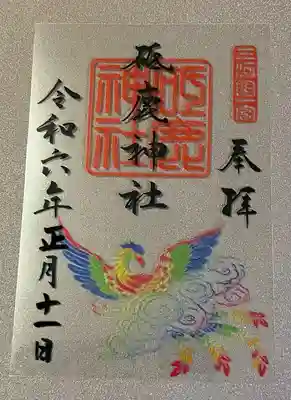 三河國一宮
奉拝
砥鹿神社
砥鹿神社
令和六年正月十一日